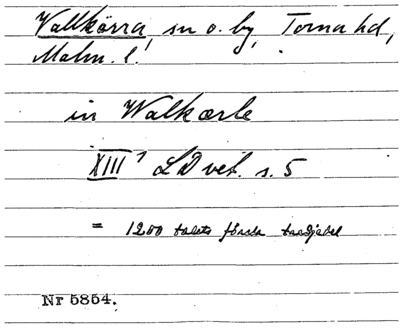 Vallkärra, sn o. by, Torna hd,
Malm. l.
in Walkærle
XIII¹ LD vet. s. 5
= 1200 talets första tredjedel
Nr 5854.